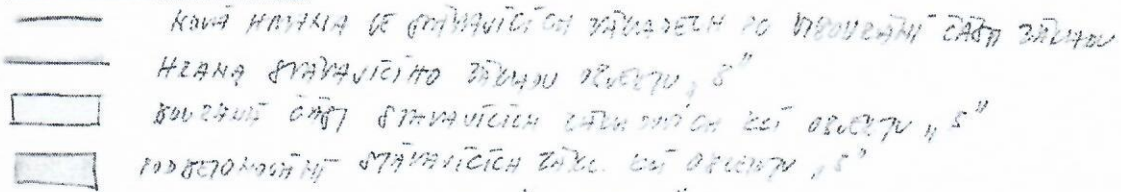 NOVÁ HRANA VE STÁVAJÍCÍCH ZÁKLADECH PO VYBOURÁNÍ ČÁSTI ZÁKLADU
HRANA STÁVAJÍCÍHO ZÁKLADU OBJEKTU „S"
BOURANÁ ČÁST STÁVAJÍCÍCH ZÁKLADOVÝCH KCÍ OBJEKTU „S"
PODBETONOVÁNÍ STÁVAJÍCÍCH ZÁKL. KCÍ OBJEKTU „S"